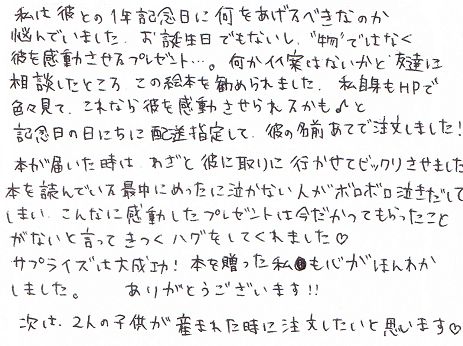 私は彼との1年記念日に何をあげるべきなのか
悩んでいました。お誕生日でもないし、"物"ではなく
彼を感動させるプレゼント…。何かイイ案はないかと友達に
相談したところ、この絵本を勧められました。私自身もHPで
色々見て、これなら彼を感動させられるかも♪と
記念日の日にちに配送指定して、彼の名前あてで注文しました!
本が届いた時は、わざと彼に取りに行かせてビックリさせました
本を読んでいる最中にめったに泣かない人がボロボロ泣きだして
しまい、こんなに感動したプレゼントは今だかつてもらったこと
がないと言ってきつくハグをしてくれました♡
サプライズは大成功!本を贈った私も心がほんわか
しました。 ありがとうございます!!
次は、2人の子供が産まれた時に注文したいと思います♡